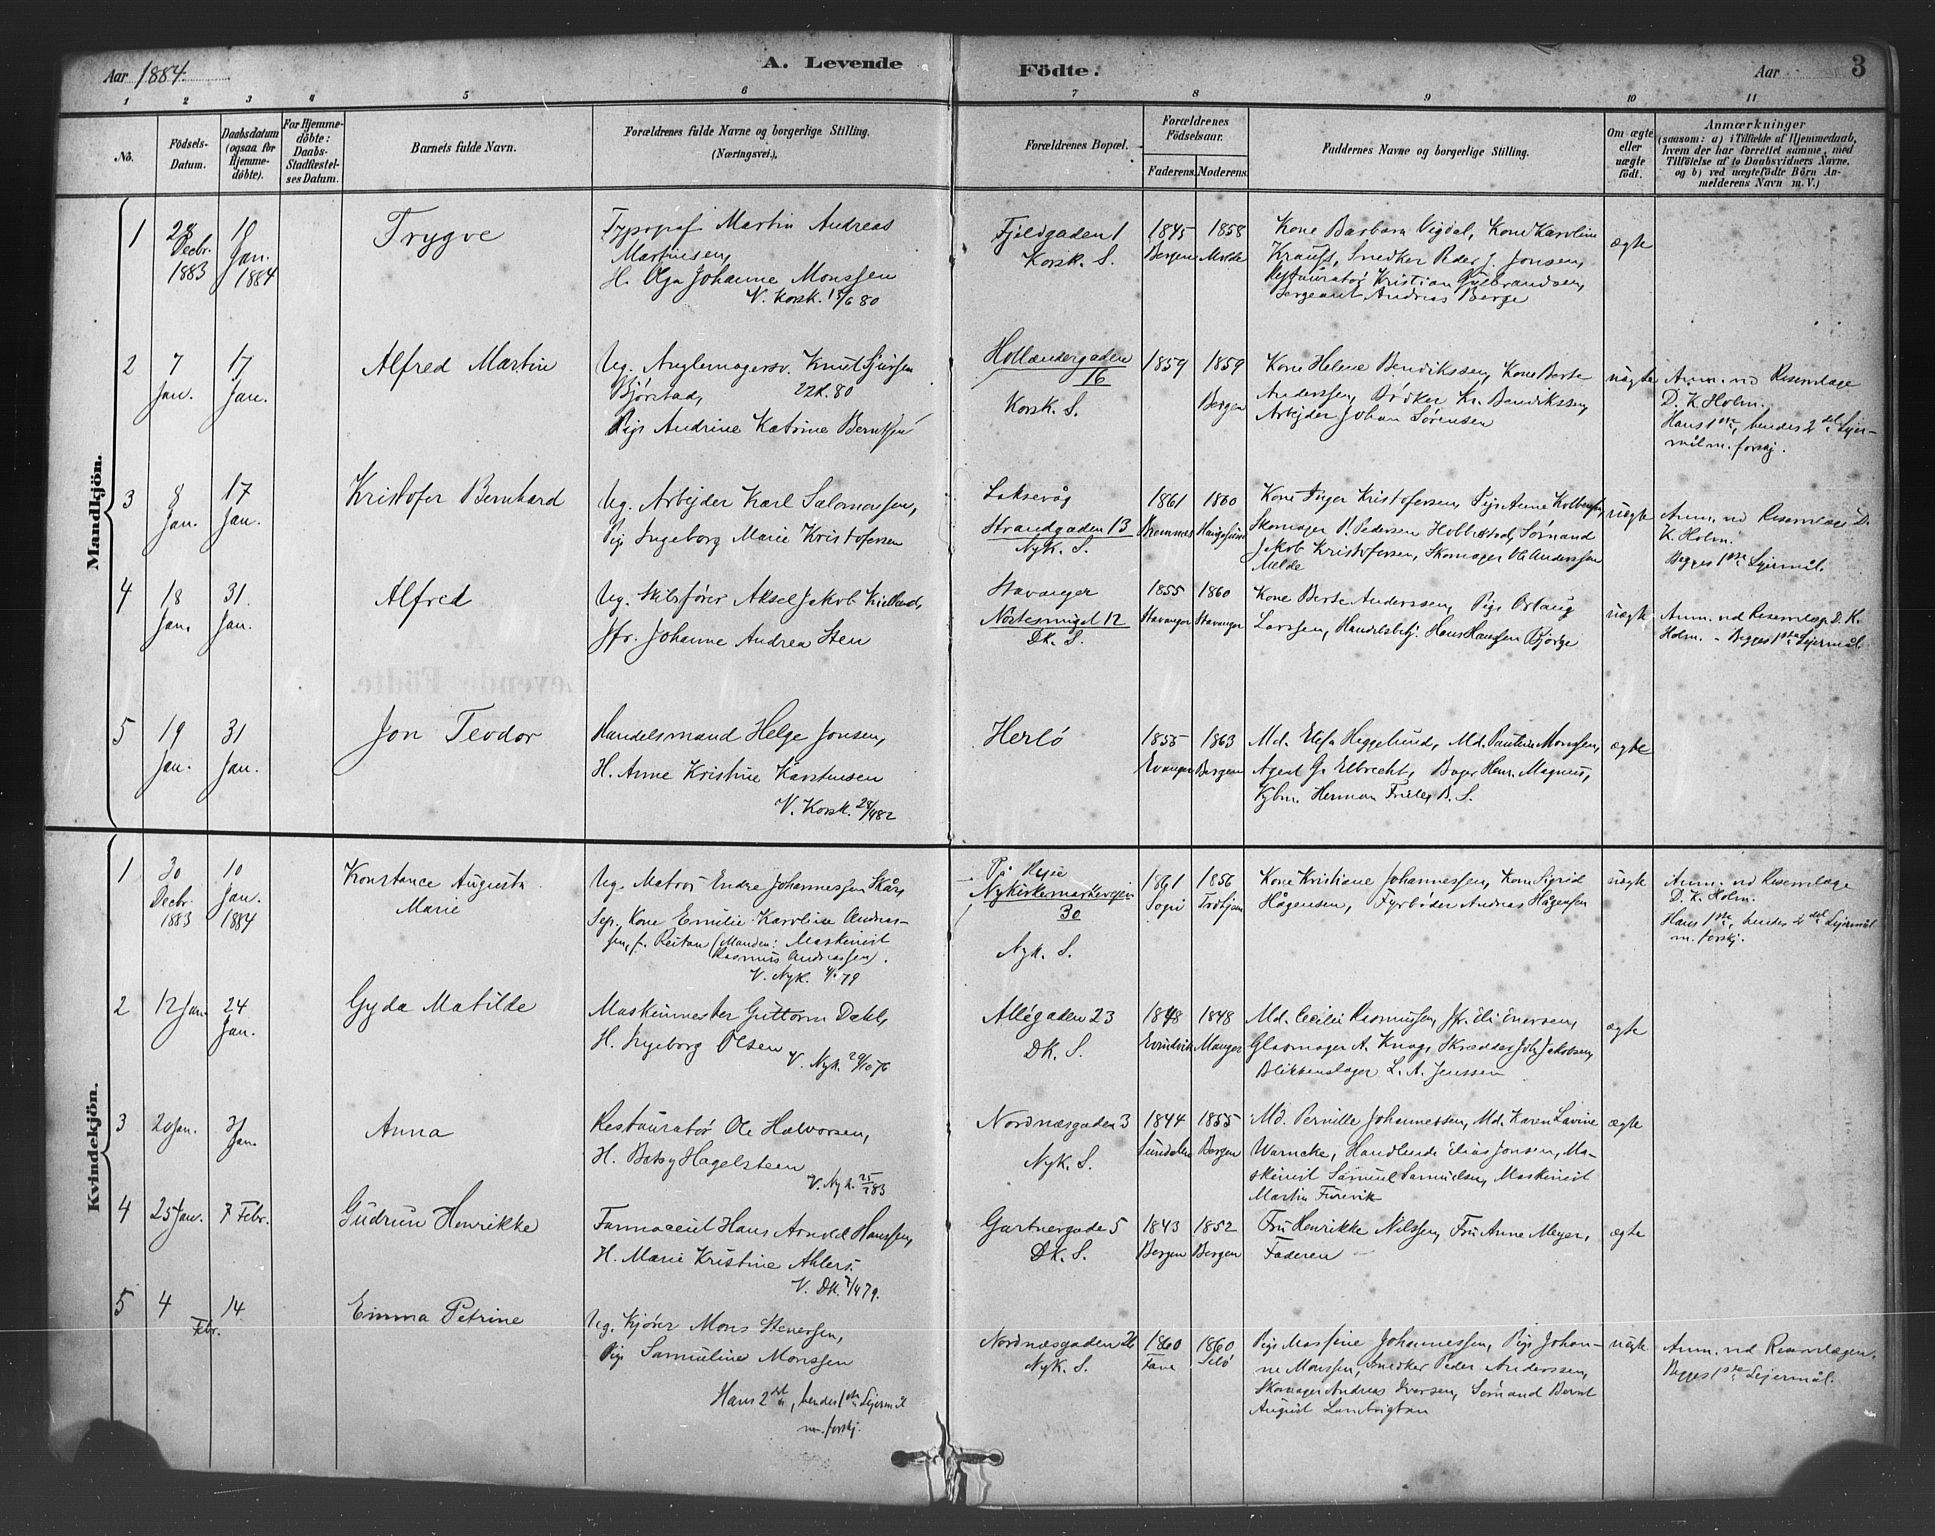 Aar 1884.
A. Levende Födte.
Aar
3
1 2 3 4 5 6 7 8 9 10 11
No.
Födsels-Datum.
Daabsdatum (ogsaa for Hjemme-döbte).
For Hjemme-döbte: Daabs-Stadfæstel-ses Datum.
Barnets fulde Navn.
Forældrenes fulde Navne og borgerlige Stilling.
(Næringsvei.)
Forældrenes Bopæl.
Forældrenes Födselsaar.
Faderens. Moderens.
Faddernes Navne og borgerlige Stilling.
Om ægte eller uægte födt.
Anmærkninger
(saasom: a) i Tilfælde af Hjemmedaab,
hvem der har forrettet samme, med
Tilföielse af to Daabsvidners Navne.
og b) ved uægtefödte Börn An-
melderens Navn m. V.)
Mandkjön.
1
28 Decbr. 1883
10 Jan. 1884
Trygve
Typograf Martin Andreas
Martinsen,
H. Olga Johanne Monssen
V. Korsk. 13/6 80
Fjeldgaden 1
Korsk. S.
1845 Bergen
1858 Molde
Kone Barbara Vigdal, Kone Karoline
Krauss, Snedker Peder J. Jonsen,
Restauratør Kristian Gulbrandsen,
Sergeant Andreas Berge
ægte
2
7 Jan.
17 Jan.
Alfred Martin
Ug. Knut Sjursen
Bjørstad,
Pige Andrine Katrine
Hollændergaden
16
Korsk. S.
1859
1859 Bergen
Kone Helene Bendikssen, Kone Berte
Anderssen, Bødker Kr. Bendikssen,
Arbejder Johan Sørensen
uægte
Anm. vd Riservlæge
D. K. Holm.
Hans 1ste, hendes 2det Lejer-
mål m. forskj.
3
8 Jan.
17 Jan.
Kristofer Bernhard
Ug. Arbejder Karl Salomonsen,
Pige Ingeborg Marie Kristofersen
Laksevåg
Strandgaden 13
Nyk. S.
1861
1860
Kone Inger Kristofersen, Pige Anne
Skomager P. Pedersen Sømand
Jakob Kristofersen, Skomager Ole Anderssen
Melde
uægte
Anm. vd D.
K. Holm.
Begges 1ste Lejermål.
4
18 Jan.
31 Jan.
Alfred
Ug. Skibsfører Aksel Jakob Kielland,
Jfr. Johanne Andrea Sten
Stavanger
Nøstesmuget 12
Dk. S.
1855 Stavanger
1860 Stavanger
Kone Berte Anderssen, Pige
Larssen, Handelsbetj. Hans Hanssen Bjørge
uægte
Anm. vd D. K.
Holm. - Begges 1ste Lejermål
5
19 Jan.
31 Jan.
Jon Teodor
Handelsmand Helge Jonsen,
H. Anne Kristine Karstensen
V. Korsk. 28/4 82
Herlø
1855 Evanger
1863 Bergen
Md. Heggelund, Md. Pauline Monssen,
Agent G. Elbrecht, Bager Henr. Magnus,
Kjbm. Herman Friele, B. S.
ægte
Kvindekjön.
1
30 Decbr. 1883
10 Jan. 1884
Konstance Augusta
Marie
Ug. Matros Endre Johannessen Skår,
Sep. Kone Emilie Karoline Andras-
sen, f. Reitan (Manden: Maskinist
Rasmus Andreassen).
V. Nyk. 79
På Rejse
Nykirkesmalleregjen
30
Nyk. S.
1861 Sogn
1856 Trdhjem
Kone Kristiane Johannessen, Kone Sigrid
Hågensen, Fyrbøder Andreas Hågensen
uægte
Anm. vd
D. K. Holm.
Hans 1ste, hendes 2det Lejermål
m. forskj.
2
12 Jan.
24 Jan.
Gyda Matilde
Maskinmester Guttorm Dahl,
H. Ingeborg Olsen
V. Nyk. 29/10 76
Allégaden 23
Dk. S.
1848 Evindvik
1848 Manger
Md. Cecilie Rasmussen, Jfr. Eli Enersen,
Glasmager A. Knag, Skrædder Joh. Jakobsen,
Blikkenslager L. A. Jenssen
ægte
3
20 Jan.
31 Jan.
Anna
Restauratør Ole Halvorsen,
H. Betsy Hagelsteen
V. Nyk. 25/2 83
Nordnæsgaden 3
Nyk. S.
1844 Sundalen
1855 Bergen
Md. Pernille Johannessen, Md. Karen Lavine
Warncke, Handlende Elias Jonsen, Ma-
skinist Samuel Samuelsen, Maskinist
Martin Furevik
ægte
4
25 Jan.
7 Febr.
Gudrun Henrikke
Farmaceut Hans Arnold Hanssen,
H. Marie Kristine Ahlers.
V. Dk. 7/4 79.
Gartnergade 5
Dk. S.
1843 Bergen
1852 Bergen
Fru Henrikke Nilssen, Fru Anne Meyer,
Faderen
ægte
5
4 Febr.
14
Emma Petrine
Ug. Kjører Mons Stenersen,
Pige Samuline Monssen
Hans 2det, hendes 1ste Lejermål
m. forskj.
Nordnæsgaden
Nyk. S.
1860 Fane
1860 Selø
Pige Massine Johannessen, Pige Johan-
ne Monssen, Snedker Peder Anderssen,
Skomager Andreas Iversen, Sømand Bernt
August
uægte
Anm. vd
Begges 1ste Lejermål.